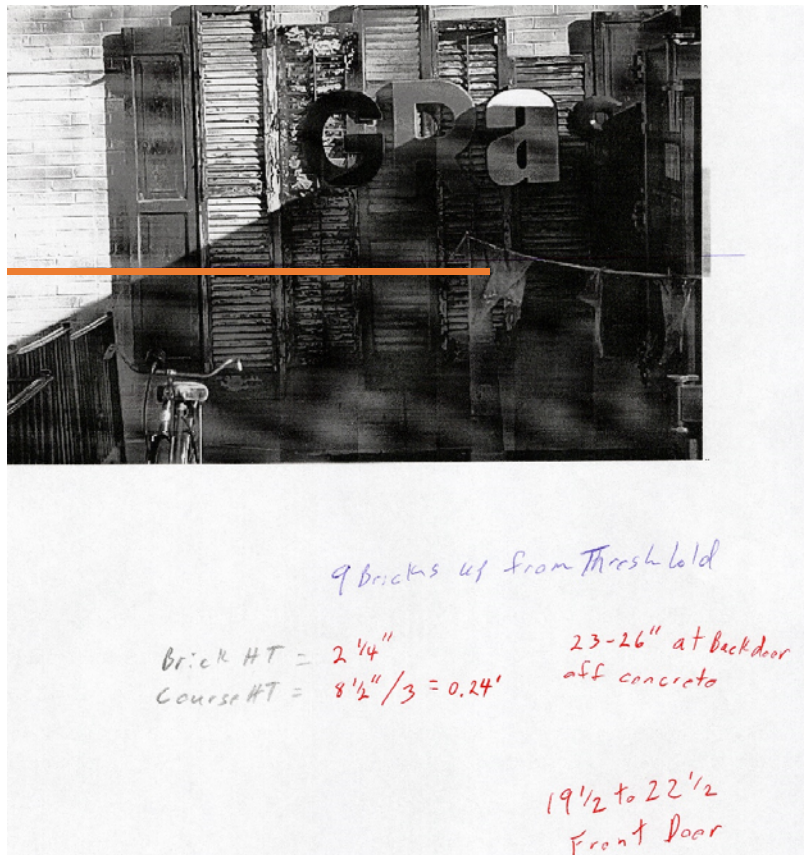 GRa
9 Bricks up from Threshhold
Brick HT = 2 1/4"
Course HT = 8 1/2"/3 = 0.24'
23-26" at Backdoor
off concrete
19 1/2 to 22 1/2
Front Door